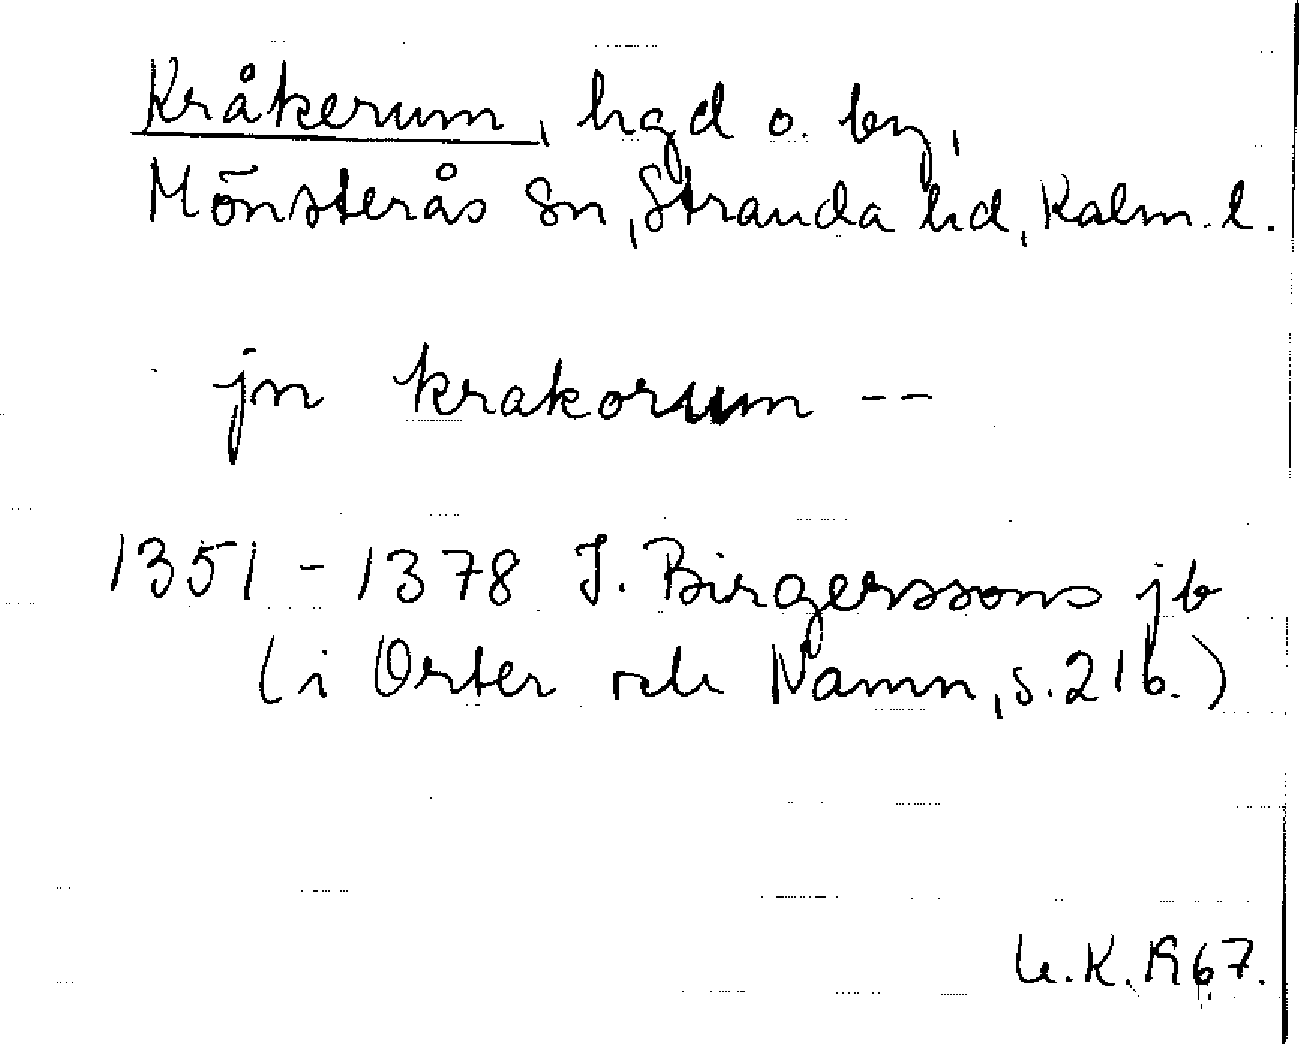 Kråkerum, hgd o. by,
Mönsterås sn, Stranda hd, Kalm. l.
jn krakorum --
1351 - 1378 I. Birgerssons jb
(i Orter och Namn, s. 216.)
U.K. 1967.